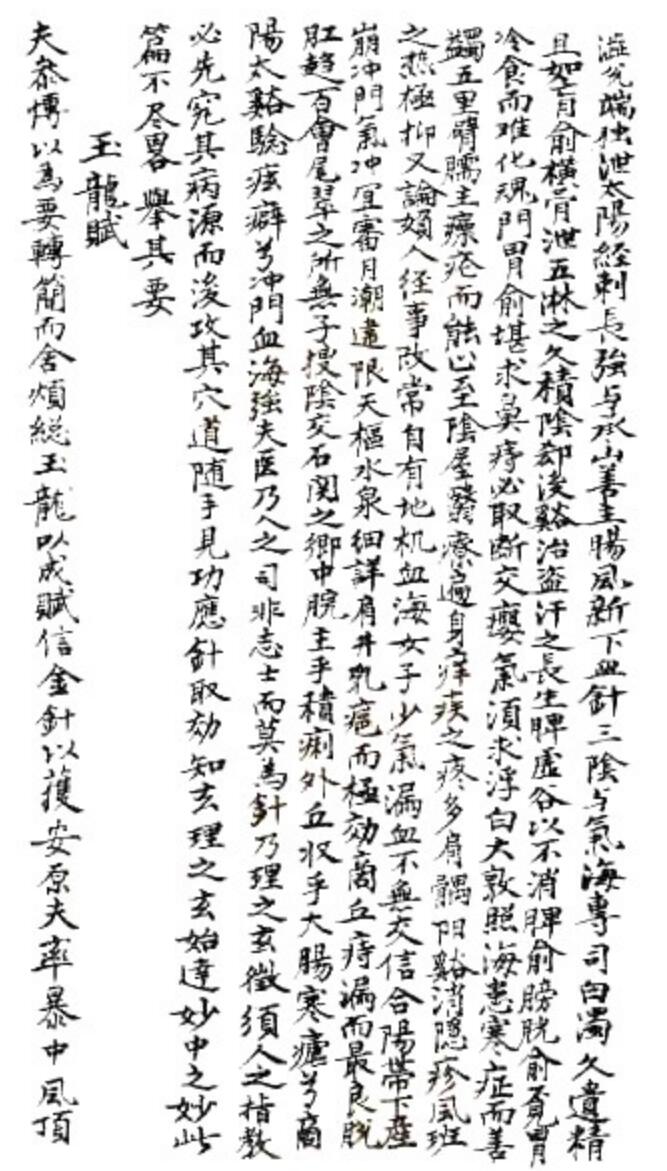 澁兌端独泄太陽経刺長強与承山善主腸風新下血針三陰与氣海專司白濁久遺精
且如肓俞橫骨泄五淋之久積陰郄後谿治盜汗之長生脾虛谷以不消脾俞膀胱俞覓胃
冷食而难化魂門胃俞堪求鼻痔必取断交癭氣須求浮白大敦照海患寒症而善
蠲五里臂臑主瘰疮而能至陰屋翳療遍身之痒疾之疼多肩髃阳谿消隐疹風班
之热極抑又論婦人经事改常自有地机血海女子少氣漏血不無交信合陽帶下產
崩冲門氣冲宜審月潮違限天樞水泉細詳肩井乳癰而極効商丘痔漏而最良脫
肛趋百會尾翠之所無子搜陰交石関之鄉中脘主乎積痢外丘收乎大腸寒瘧兮商
陽太谿驗痃癖兮冲門血海強夫医乃人之司非志士而莫為針乃理之玄徵須人之指教
必先究其病源而後攻其穴道随手見功應針取効知玄理之玄始達妙中之妙此
篇不尽畧舉其要
玉龍賦
夫参博以為要轉簡而舍煩総玉龍以成賦信金針以獲安原夫卒暴中風頂